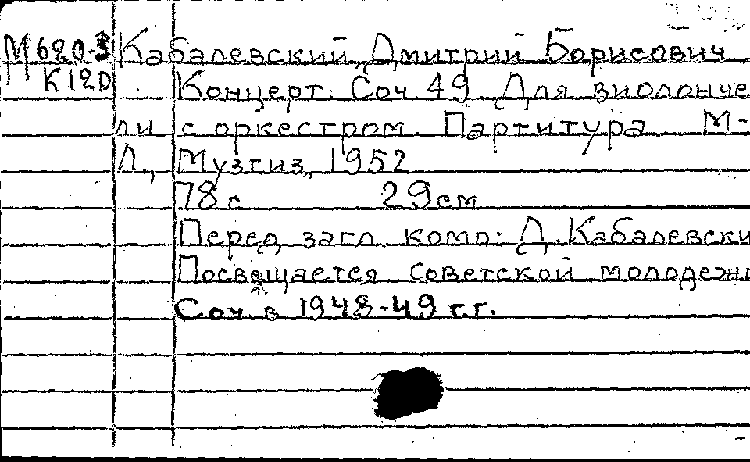 М620-3 Кабалевский, Дмитрий Борисович
К12D Концерт. Соч 49 Для виолонче
ли с оркестром. Партитура М-
Л., Музгиз, 1952
78 с 29 см
Перед загл. комп: Д. Кабалевски
Посвящается советской молодежи
Соч в 1948-49 г.г.